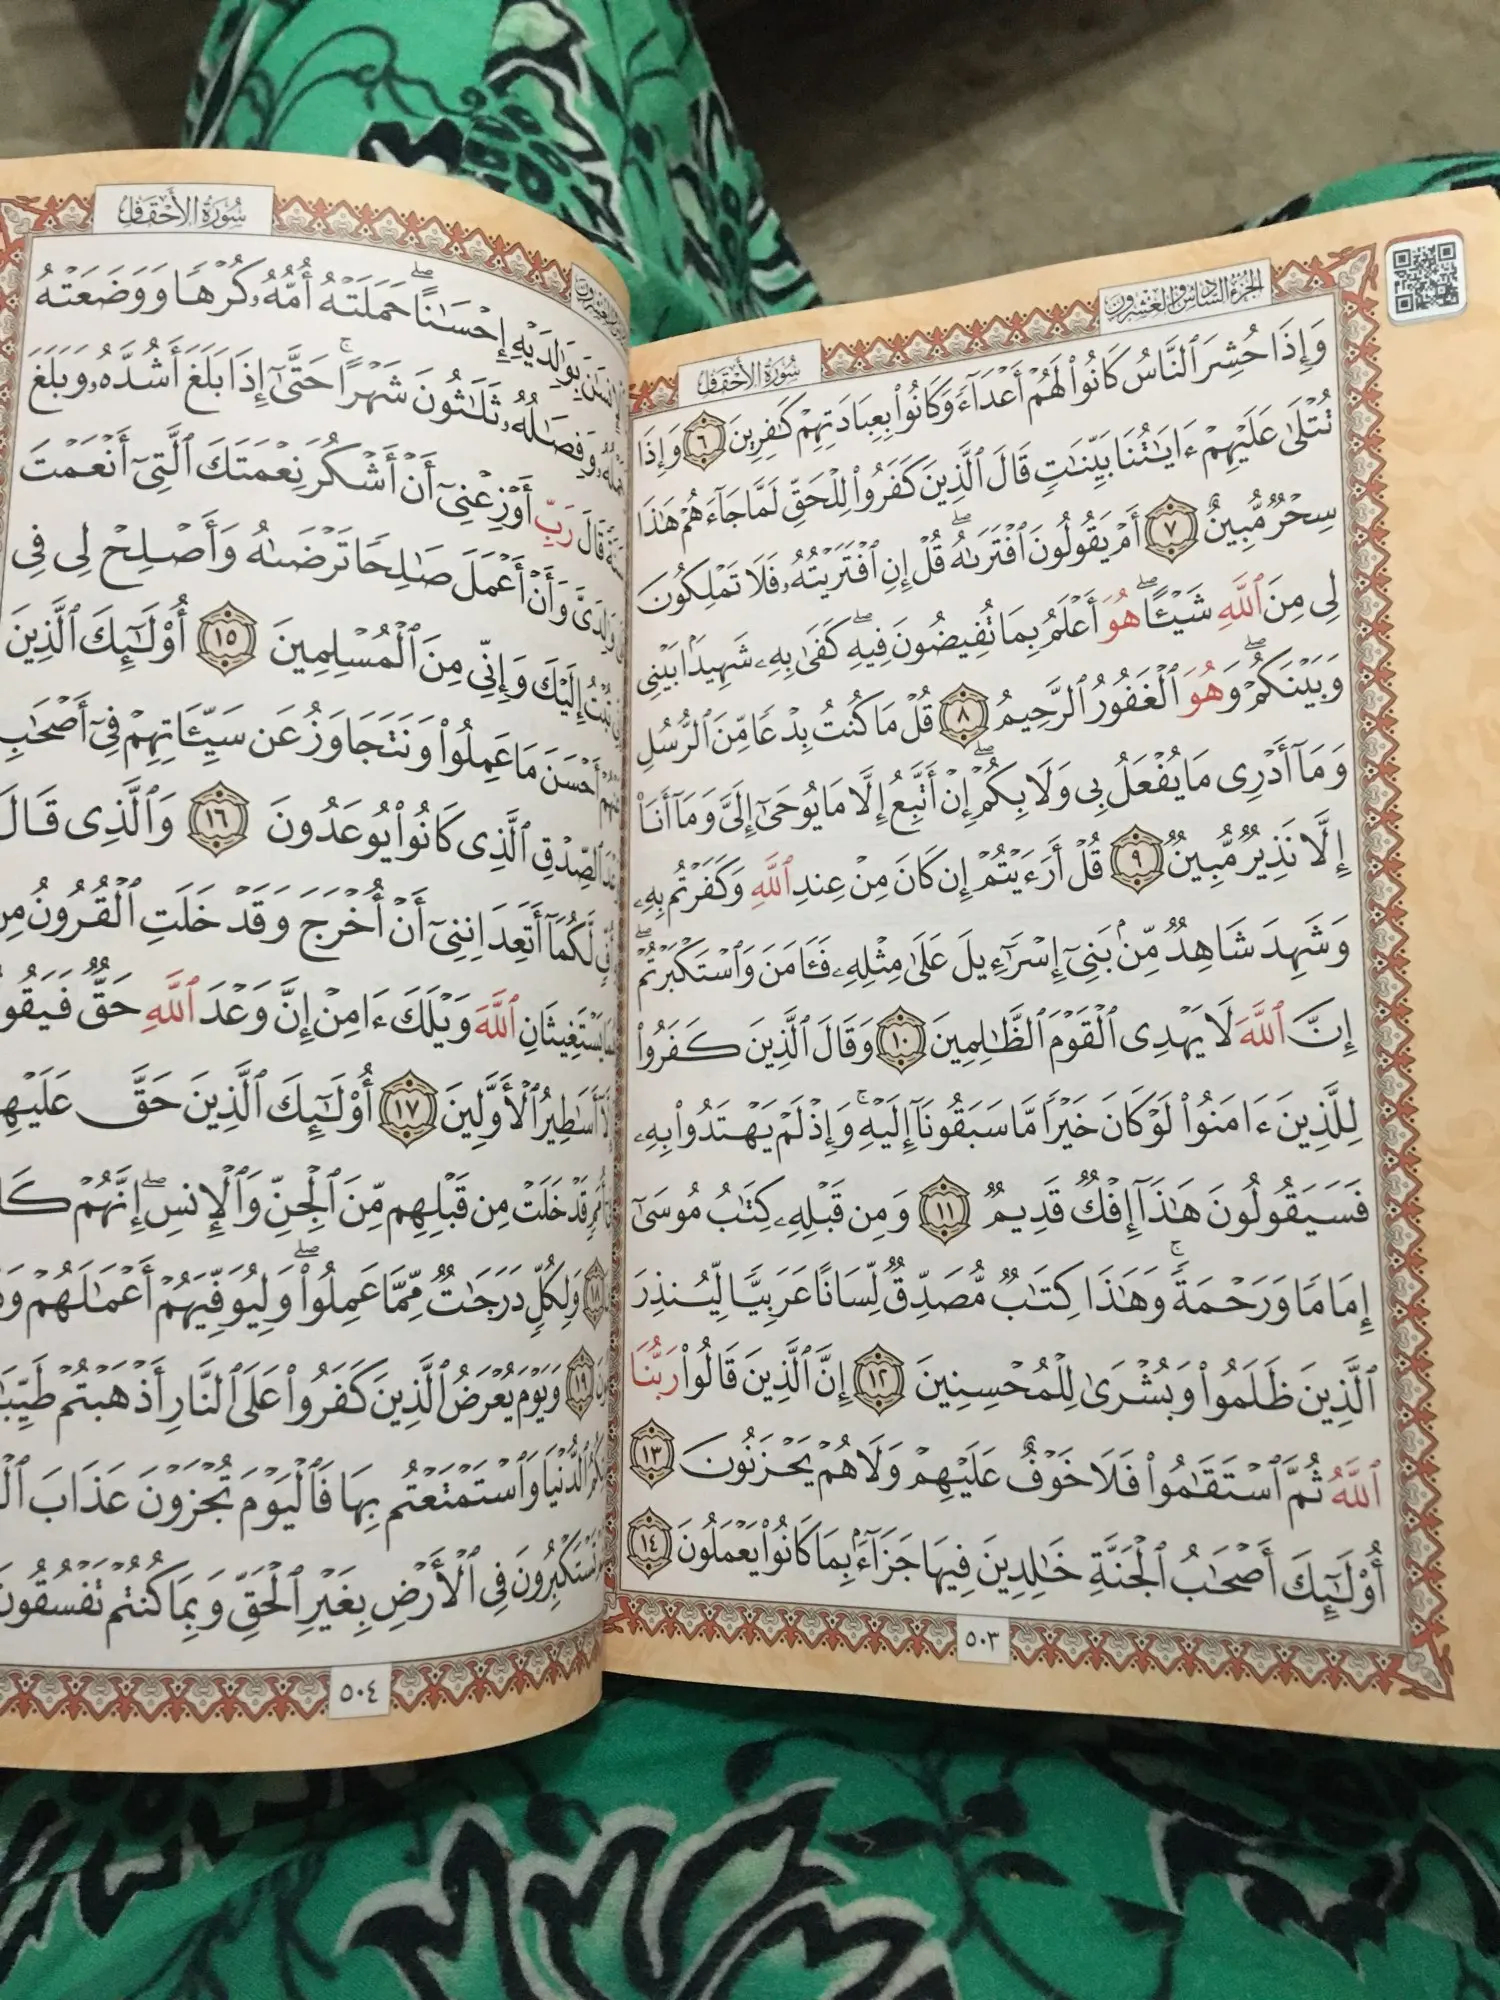 الجزء السادس والعشرون
سورة الأحقاف
وَإِذَا حُشِرَ ٱلنَّاسُ كَانُوا۟ لَهُمْ أَعْدَآءً وَكَانُوا۟ بِعِبَادَتِهِمْ كَٰفِرِينَ ٦ وَإِذَا
تُتْلَىٰ عَلَيْهِمْ ءَايَٰتُنَا بَيِّنَٰتٍ قَالَ ٱلَّذِينَ كَفَرُوا۟ لِلْحَقِّ لَمَّا جَآءَهُمْ هَٰذَا
سِحْرٌ مُّبِينٌ ٧ أَمْ يَقُولُونَ ٱفْتَرَىٰهُ ۖ قُلْ إِنِ ٱفْتَرَيْتُهُۥ فَلَا تَمْلِكُونَ
لِى مِنَ ٱللَّهِ شَيْـًٔا ۖ هُوَ أَعْلَمُ بِمَا تُفِيضُونَ فِيهِ ۖ كَفَىٰ بِهِۦ شَهِيدًۢا بَيْنِى
وَبَيْنَكُمْ ۖ وَهُوَ ٱلْغَفُورُ ٱلرَّحِيمُ ٨ قُلْ مَا كُنتُ بِدْعًا مِّنَ ٱلرُّسُلِ
وَمَآ أَدْرِى مَا يُفْعَلُ بِى وَلَا بِكُمْ ۖ إِنْ أَتَّبِعُ إِلَّا مَا يُوحَىٰٓ إِلَىَّ وَمَآ أَنَا۠
إِلَّا نَذِيرٌ مُّبِينٌ ٩ قُلْ أَرَءَيْتُمْ إِن كَانَ مِنْ عِندِ ٱللَّهِ وَكَفَرْتُم بِهِۦ
وَشَهِدَ شَاهِدٌ مِّنۢ بَنِىٓ إِسْرَٰٓءِيلَ عَلَىٰ مِثْلِهِۦ فَـَٔامَنَ وَٱسْتَكْبَرْتُمْ ۖ
إِنَّ ٱللَّهَ لَا يَهْدِى ٱلْقَوْمَ ٱلظَّٰلِمِينَ ١٠ وَقَالَ ٱلَّذِينَ كَفَرُوا۟
لِلَّذِينَ ءَامَنُوا۟ لَوْ كَانَ خَيْرًا مَّا سَبَقُونَآ إِلَيْهِ ۚ وَإِذْ لَمْ يَهْتَدُوا۟ بِهِۦ
فَسَيَقُولُونَ هَٰذَآ إِفْكٌ قَدِيمٌ ١١ وَمِن قَبْلِهِۦ كِتَٰبُ مُوسَىٰٓ
إِمَامًا وَرَحْمَةً ۚ وَهَٰذَا كِتَٰبٌ مُّصَدِّقٌ لِّسَانًا عَرَبِيًّا لِّيُنذِرَ
ٱلَّذِينَ ظَلَمُوا۟ وَبُشْرَىٰ لِلْمُحْسِنِينَ ١٢ إِنَّ ٱلَّذِينَ قَالُوا۟ رَبُّنَا
ٱللَّهُ ثُمَّ ٱسْتَقَٰمُوا۟ فَلَا خَوْفٌ عَلَيْهِمْ وَلَا هُمْ يَحْزَنُونَ ١٣
أُو۟لَٰٓئِكَ أَصْحَٰبُ ٱلْجَنَّةِ خَٰلِدِينَ فِيهَا جَزَآءًۢ بِمَا كَانُوا۟ يَعْمَلُونَ ١٤
٥٠٣
سورة الأحقاف
بِوَٰلِدَيْهِ إِحْسَٰنًا ۖ حَمَلَتْهُ أُمُّهُۥ كُرْهًا وَوَضَعَتْهُ
وَفِصَٰلُهُۥ ثَلَٰثُونَ شَهْرًا ۚ حَتَّىٰٓ إِذَا بَلَغَ أَشُدَّهُۥ وَبَلَغَ
قَالَ رَبِّ أَوْزِعْنِىٓ أَنْ أَشْكُرَ نِعْمَتَكَ ٱلَّتِىٓ أَنْعَمْتَ
وَٰلِدَىَّ وَأَنْ أَعْمَلَ صَٰلِحًا تَرْضَىٰهُ وَأَصْلِحْ لِى فِى
تُبْتُ إِلَيْكَ وَإِنِّى مِنَ ٱلْمُسْلِمِينَ ١٥ أُو۟لَٰٓئِكَ ٱلَّذِينَ
أَحْسَنَ مَا عَمِلُوا۟ وَنَتَجَاوَزُ عَن سَيِّـَٔاتِهِمْ فِىٓ أَصْحَٰبِ
ٱلصِّدْقِ ٱلَّذِى كَانُوا۟ يُوعَدُونَ ١٦ وَٱلَّذِى قَالَ
لَّكُمَآ أَتَعِدَانِنِىٓ أَنْ أُخْرَجَ وَقَدْ خَلَتِ ٱلْقُرُونُ مِن
يَسْتَغِيثَانِ ٱللَّهَ وَيْلَكَ ءَامِنْ إِنَّ وَعْدَ ٱللَّهِ حَقٌّ
أَسَٰطِيرُ ٱلْأَوَّلِينَ ١٧ أُو۟لَٰٓئِكَ ٱلَّذِينَ حَقَّ
قَدْ خَلَتْ مِن قَبْلِهِم مِّنَ ٱلْجِنِّ وَٱلْإِنسِ ۖ إِنَّهُمْ
١٨ وَلِكُلٍّ دَرَجَٰتٌ مِّمَّا عَمِلُوا۟ ۖ وَلِيُوَفِّيَهُمْ أَعْمَٰلَهُمْ
١٩ وَيَوْمَ يُعْرَضُ ٱلَّذِينَ كَفَرُوا۟ عَلَى ٱلنَّارِ أَذْهَبْتُمْ
ٱلدُّنْيَا وَٱسْتَمْتَعْتُم بِهَا فَٱلْيَوْمَ تُجْزَوْنَ عَذَابَ
تَسْتَكْبِرُونَ فِى ٱلْأَرْضِ بِغَيْرِ ٱلْحَقِّ وَبِمَا كُنتُمْ تَفْسُقُونَ
٥٠٤